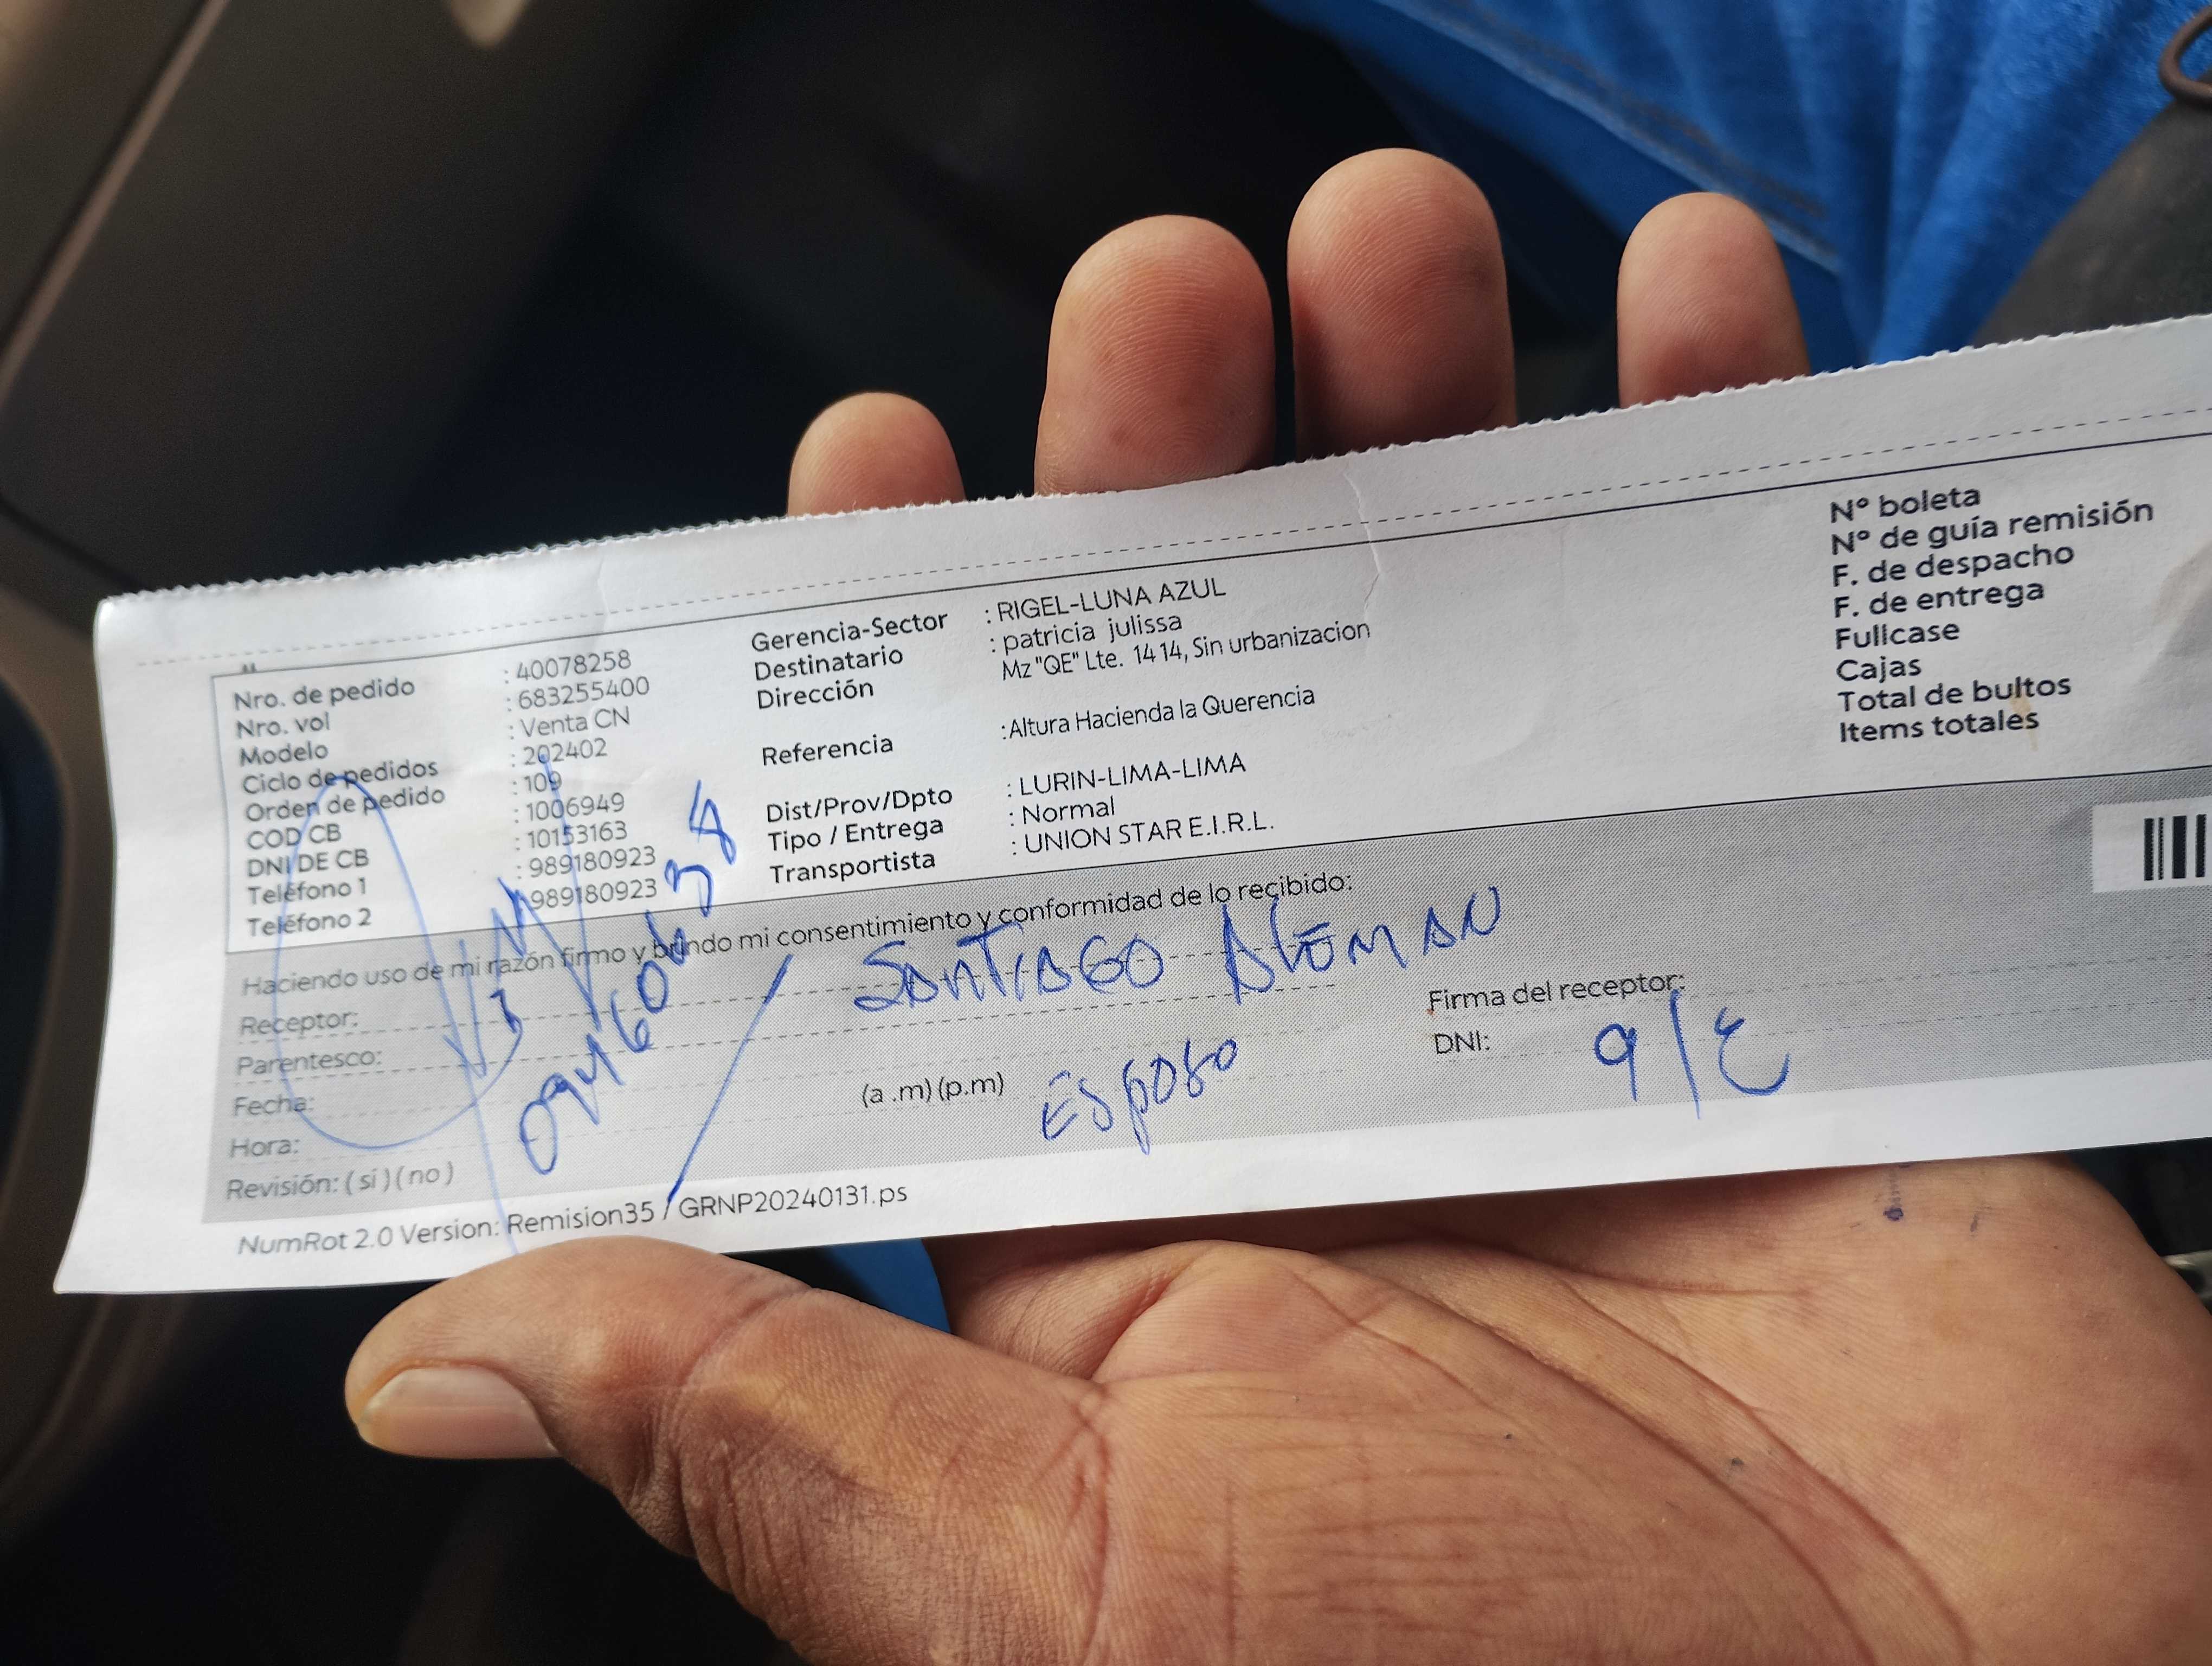 Nro. de pedido : 40078258
Nro. vol : 683255400
Modelo : Venta CN
Ciclo de pedidos : 202402
Orden de pedido : 109
COD CB : 1006949
DNI DE CB : 10153163
Teléfono 1 : 989180923
Teléfono 2 989180923
Gerencia-Sector : RIGEL-LUNA AZUL
Destinatario : patricia julissa
Dirección Mz "QE" Lte. 14 14, Sin urbanizacion
Referencia : Altura Hacienda la Querencia
Dist/Prov/Dpto : LURIN-LIMA-LIMA
Tipo / Entrega : Normal
Transportista : UNION STAR E.I.R.L.
N° boleta
N° de guía remisión
F. de despacho
F. de entrega
Fullcase
Cajas
Total de bultos
Items totales
Haciendo uso de mi razón firmo y brindo mi consentimiento y conformidad de lo recibido:
Receptor: SANTIAGO ALEMAN
Parentesco:
Fecha: (a .m) (p.m) ESPOSO
Hora:
Revisión: ( si ) ( no )
Firma del receptor:
DNI: 9/E
NumRot 2.0 Version: Remision35 / GRNP20240131.ps